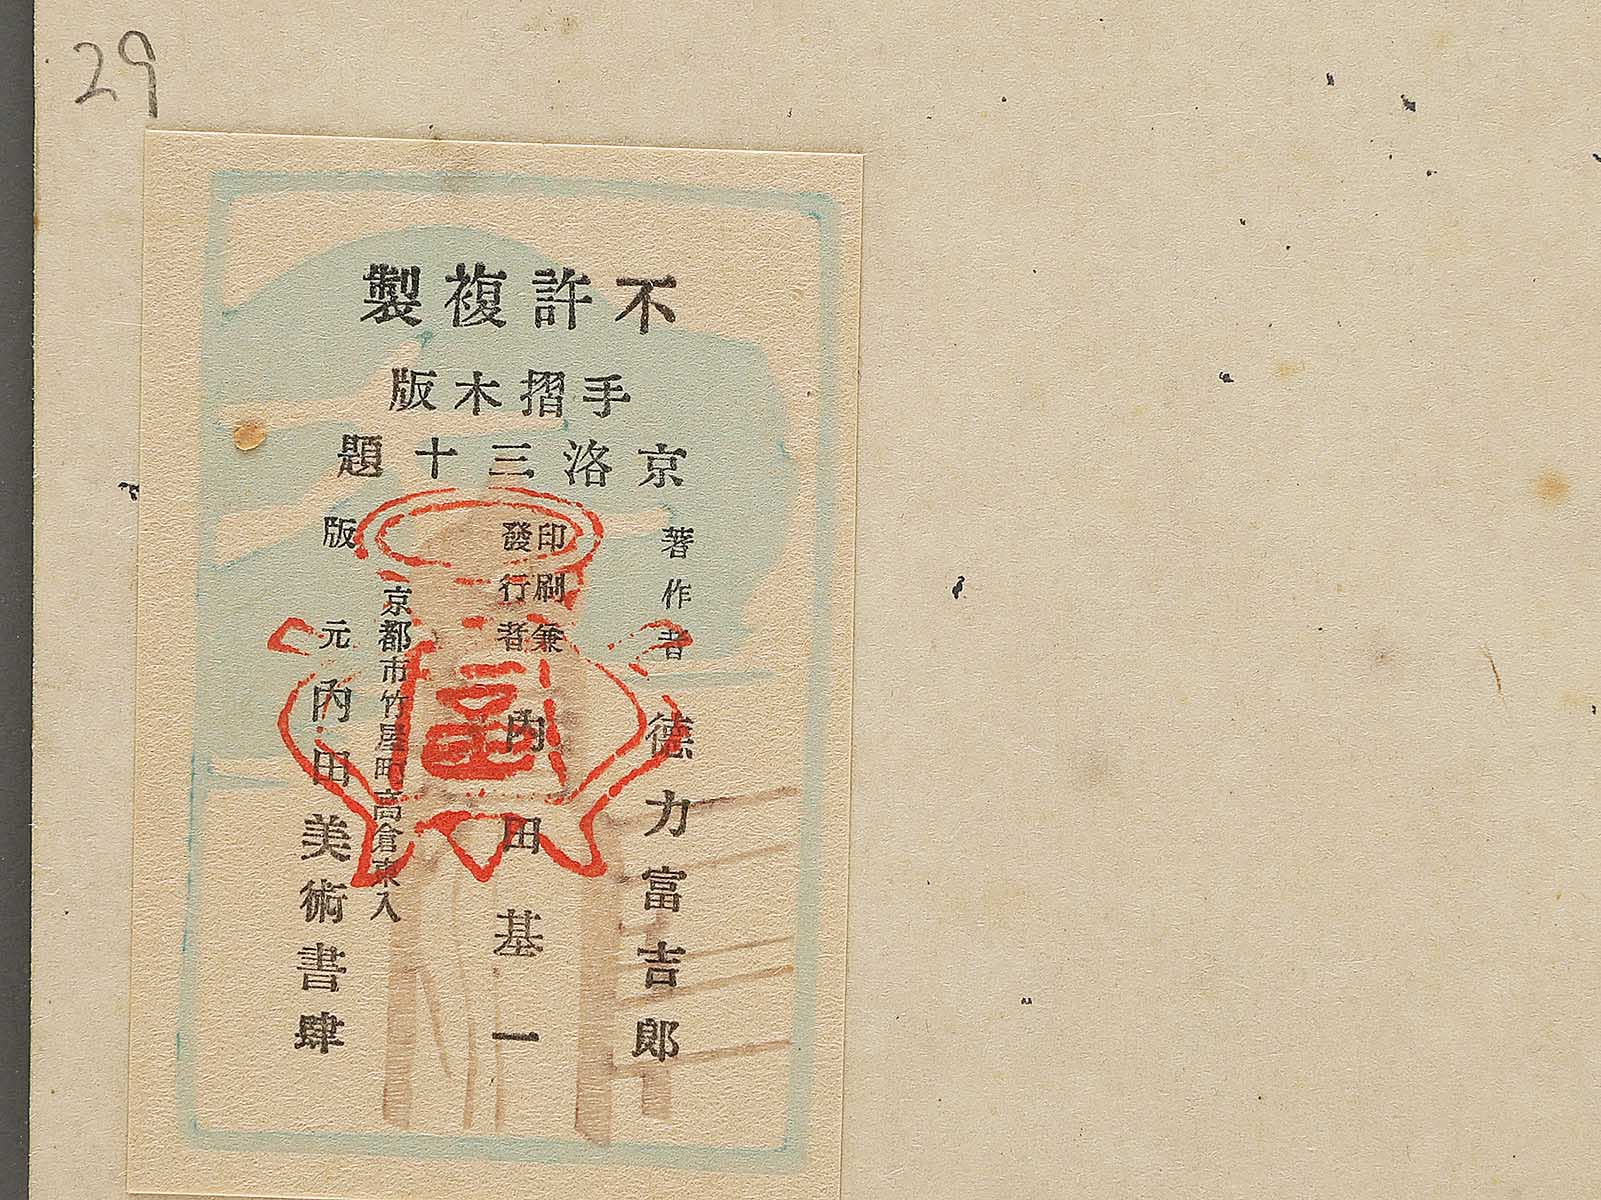 29
不許複製
手摺木版
京洛三十題
著作者 徳力富吉郎
印刷兼
發行者 内田基一
京都市竹屋町高倉東入
版元 内田美術書肆